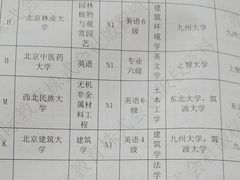 园林
植物
与观
赏园
艺
北京林业大
学
N1
英语6
级
建筑
环境
学
九州大学
B
北京中医药
大学
英语
N1
专业
六级
英文
学
上智大学
M
西北民族大
学
无机
非金
属材
料工
程
N1
英语6
级
土木
工学
东北大学，筑
波大学
K
北京建筑大
学
建筑
学
N1
英语4
级
建筑
学
九州大学，筑
波大学
法学